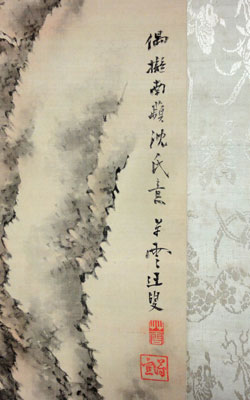 偶擬南蘋沈氏意　草雲狂叟